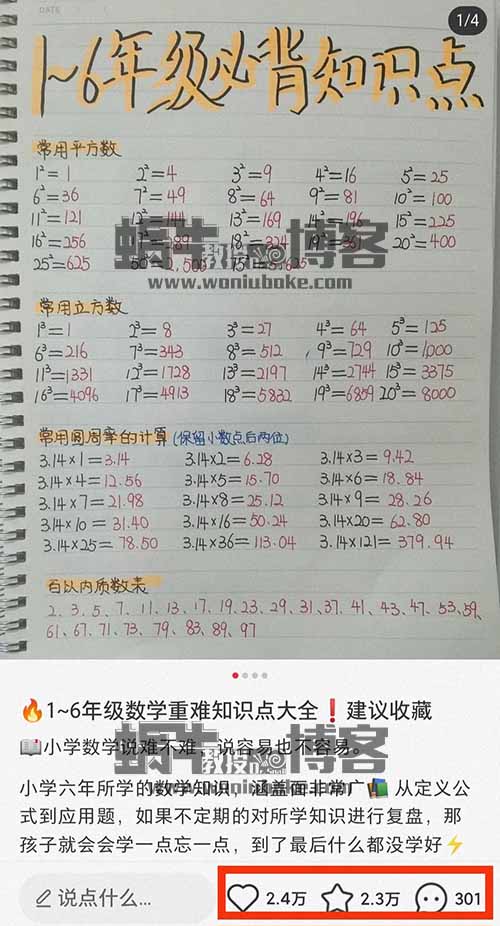 DATE
1/4
1~6年级必背知识点
常用平方数
1²=1 2²=4 3²=9 4²=16 5²=25
6²=36 7²=49 8²=64 9²=81 10²=100
11²=121 12²=144 13²=169 14²=196 15²=225
16²=256 18²=324 19²=361 20²=400
25²=625
蜗牛博客
www.woniuboke.com
常用立方数
1³=1 2³=8 3³=27 4³=64 5³=125
6³=216 7³=343 8³=512 9³=729 10³=1000
11³=1331 12³=1728 13³=2197 14³=2744 15³=3375
16³=4096 17³=4913 18³=5832 19³=6859 20³=8000
常用圆周率的计算(保留小数点后两位)
3.14×1=3.14 3.14×2=6.28 3.14×3=9.42
3.14×4=12.56 3.14×5=15.70 3.14×6=18.84
3.14×7=21.98 3.14×8=25.12 3.14×9=28.26
3.14×10=31.40 3.14×16=50.24 3.14×20=62.80
3.14×25=78.50 3.14×36=113.04 3.14×121=379.94
百以内质数表
2、3、5、7、11、13、17、19、23、29、31、37、41、43、47、53、59、
61、67、71、73、79、83、89、97
🔥1~6年级数学重难知识点大全❗建议收藏
📖小学数学说难不难、说容易也不容易。
蜗牛博客
www.woniuboke.com
小学六年所学的数学知识，涵盖面非常广📚 从定义公
式到应用题，如果不定期的对所学知识进行复盘，那
孩子就会会学一点忘一点，到了最后什么都没学好⚡
说点什么...
2.4万
2.3万
301